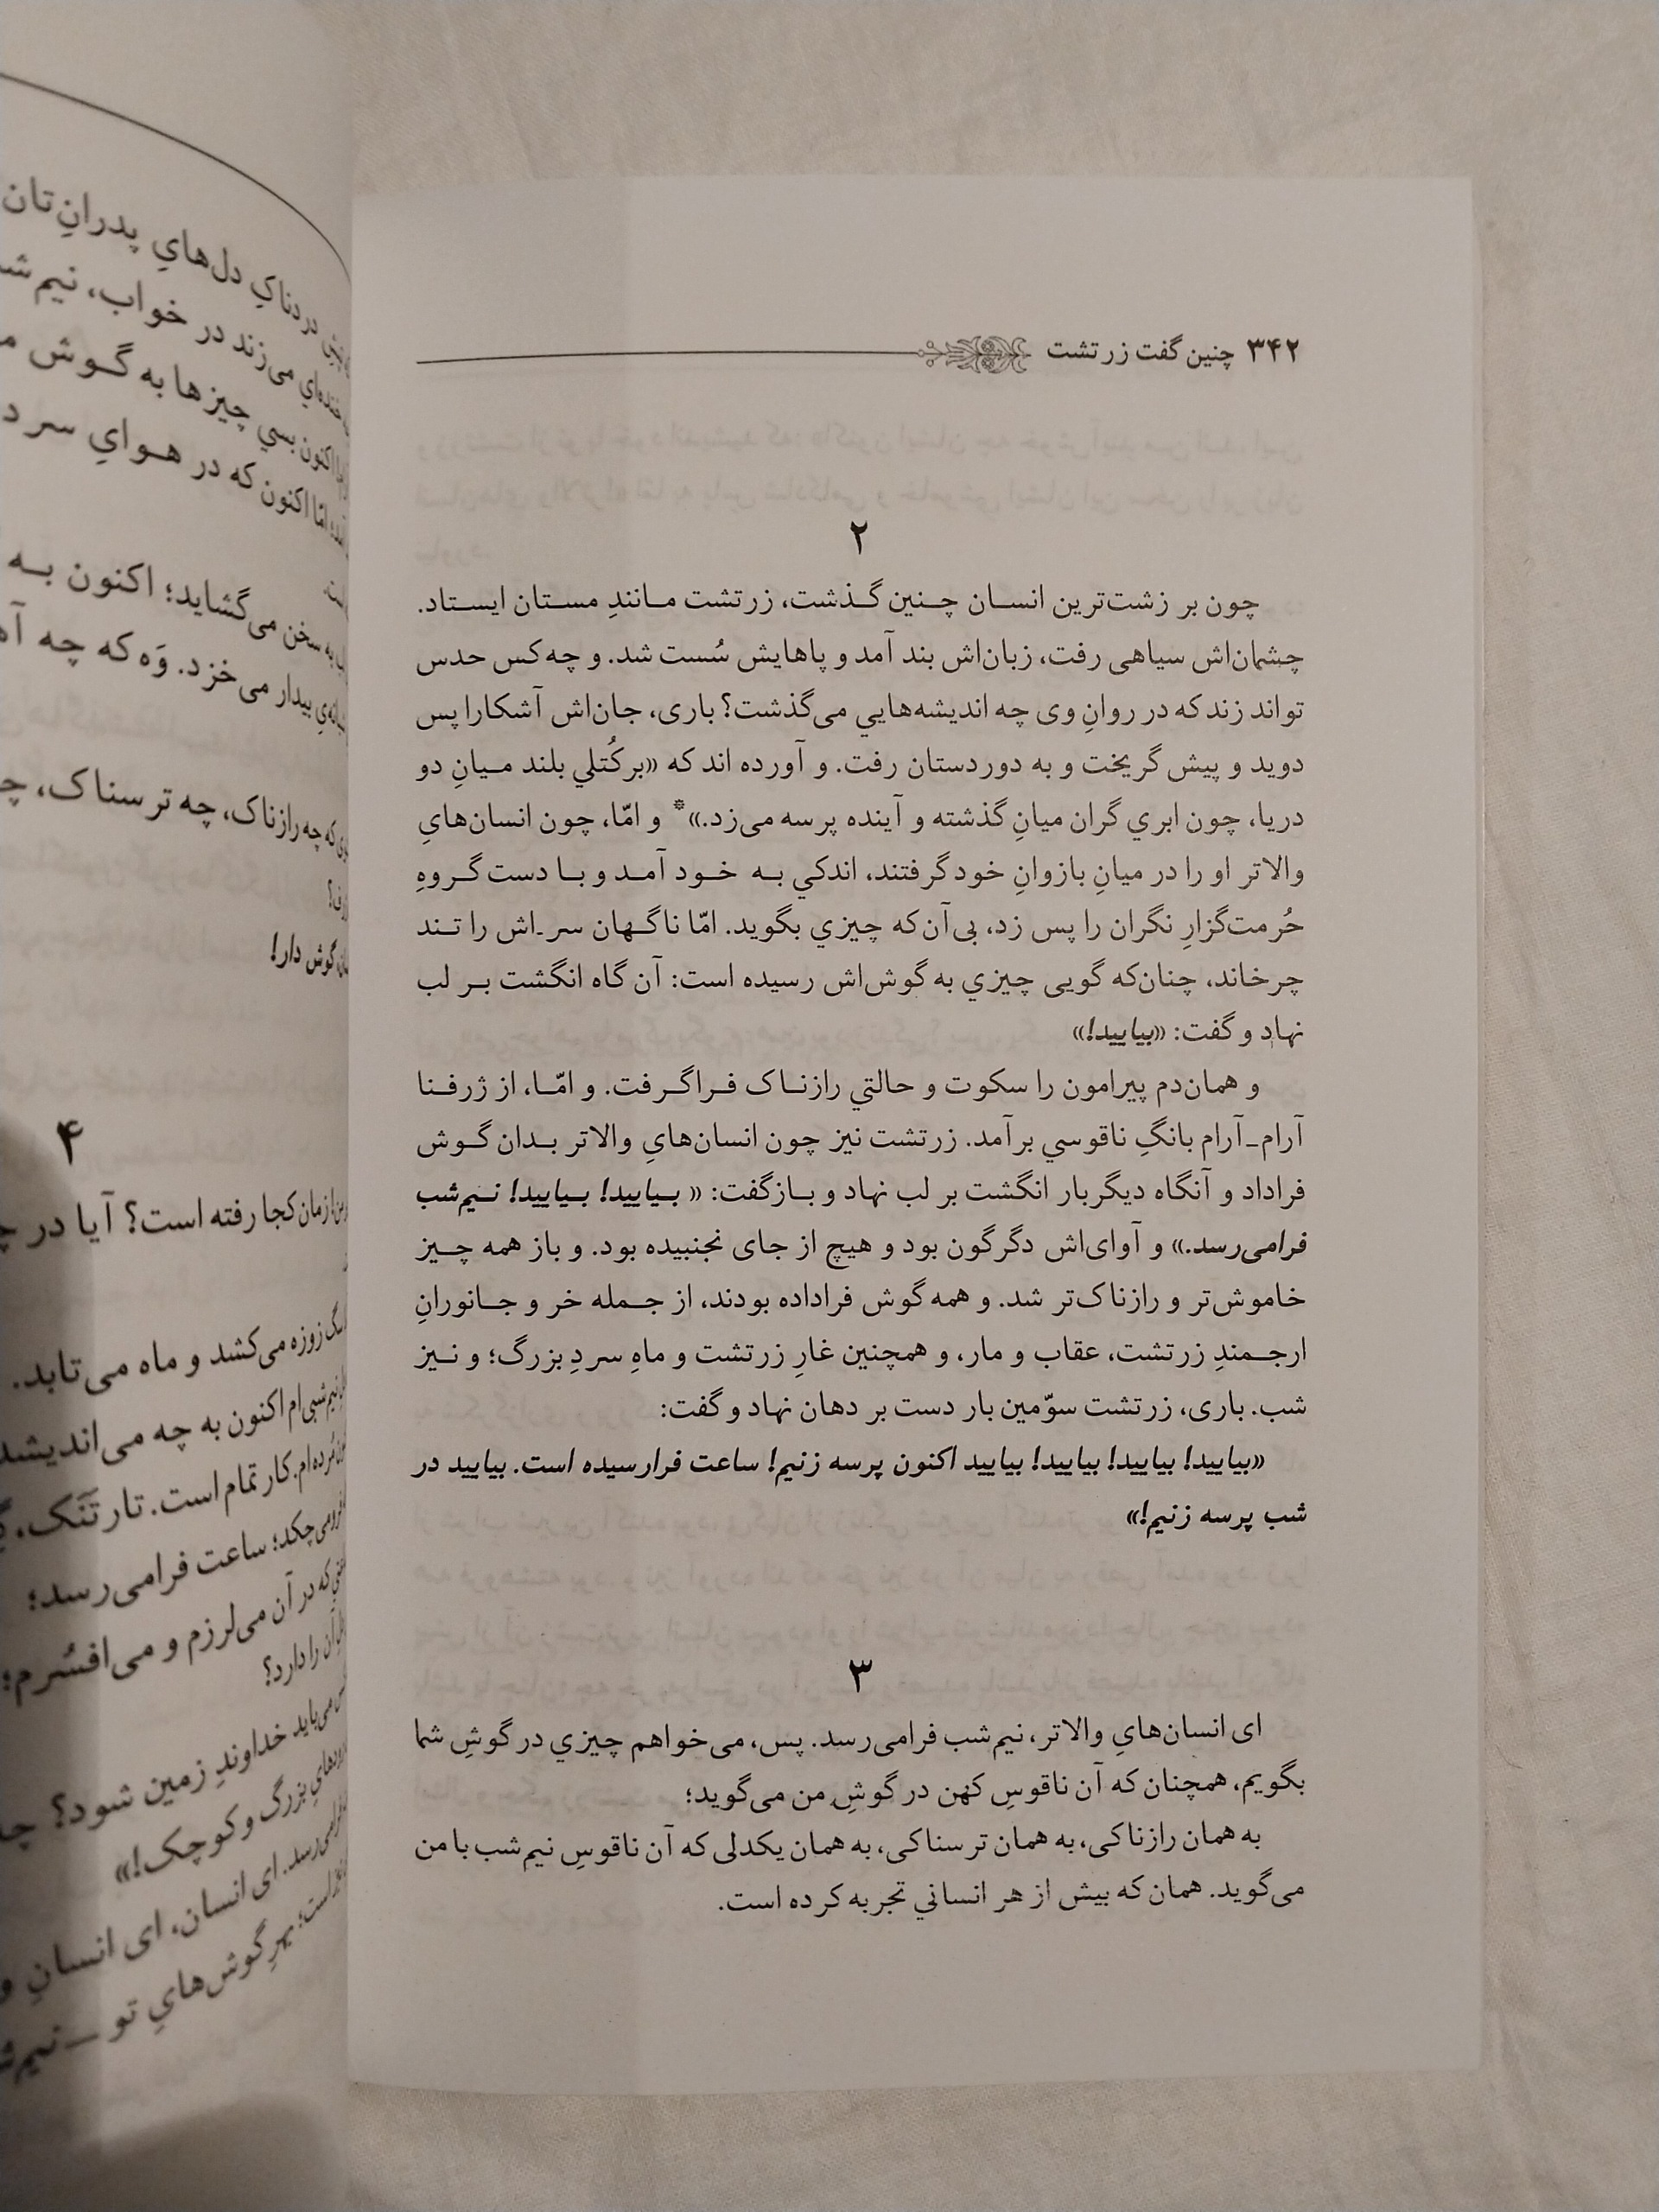 ۳۴۲ چنین گفت زرتشت
۲
چون بر زشت‌ترین انسان چنین گذشت، زرتشت مانندِ مستان ایستاد.
چشمان‌اش سیاهی رفت، زبان‌اش بند آمد و پاهایش سُست شد. و چه کس حدس
تواند زند که در روانِ وی چه اندیشه‌هایي می‌گذشت؟ باری، جان‌اش آشکارا پس
دوید و پیش گریخت و به دوردستان رفت. و آورده اند که «بر کُتلي بلند میانِ دو
دریا، چون ابري گران میانِ گذشته و آینده پرسه می‌زد.»* و امّا، چون انسان‌هایِ
والاتر او را در میانِ بازوانِ خود گرفتند، اندکي به خود آمد و با دست گروهِ
حُرمت‌گزارِ نگران را پس زد، بی‌آن‌که چیزي بگوید. امّا ناگهان سر-اش را تند
چرخاند، چنان‌که گویی چیزي به گوش‌اش رسیده است: آن گاه انگشت بر لب
نهاد و گفت: «بیایید!»
و همان‌دم پیرامون را سکوت و حالتي رازناک فراگرفت. و امّا، از ژرفنا
آرام-آرام بانگِ ناقوسي برآمد. زرتشت نیز چون انسان‌هایِ والاتر بدان گوش
فراداد و آنگاه دیگربار انگشت بر لب نهاد و بازگفت: «بیایید! بیایید! نیم‌شب
فرامی‌رسد.» و آوای‌اش دگرگون بود و هیچ از جای نجنبیده بود. و باز همه چیز
خاموش‌تر و رازناک‌تر شد. و همه گوش فراداده بودند، از جمله خر و جانورانِ
ارجمندِ زرتشت، عقاب و مار، و همچنین غارِ زرتشت و ماهِ سردِ بزرگ؛ و نیز
شب. باری، زرتشت سوّمین بار دست بر دهان نهاد و گفت:
«بیایید! بیایید! بیایید! بیایید اکنون پرسه زنیم! ساعت فرارسیده است. بیایید در
شب پرسه زنیم!»
۳
ای انسان‌هایِ والاتر، نیم‌شب فرامی‌رسد. پس، می‌خواهم چیزي در گوشِ شما
بگویم، همچنان که آن ناقوسِ کهن در گوشِ من می‌گوید؛
به همان رازناکی، به همان ترسناکی، به همان یکدلی که آن ناقوسِ نیم‌شب با من
می‌گوید. همان که بیش از هر انساني تجربه کرده است.
دردناکِ دل‌هایِ پدرانِ‌تان
می‌زند در خواب، نیم
اکنون بسي چیزها به گوش
امّا اکنون که در هوایِ سرد
به سخن می‌گشاید؛ اکنون به
بیدار می‌خزد. وَه که چه
که چه رازناک، چه ترسناک،
گوش دار!
۴
زمان کجا رفته است؟ آیا در
زوزه می‌کشد و ماه می‌تابد.
نیم‌شبی‌ام اکنون به چه می‌اندیشد
مُرده‌ام. کار تمام است. تارتَنَک،
می‌چکد؛ ساعت فرامی‌رسد؛
که در آن می‌لرزم و می‌افسُرم؛
آن را دارد؟
می‌باید خداوندِ زمین شود؟
بزرگ و کوچک!»
ای انسان، ای انسانِ
بهرِ گوش‌هایِ تو —